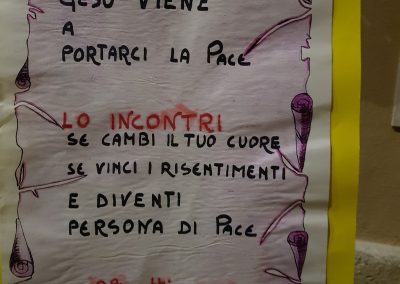 GESÙ VIENE
A
PORTARCI LA PACE
LO INCONTRI
SE CAMBI IL TUO CUORE
SE VINCI I RISENTIMENTI
E DIVENTI
PERSONA DI PACE